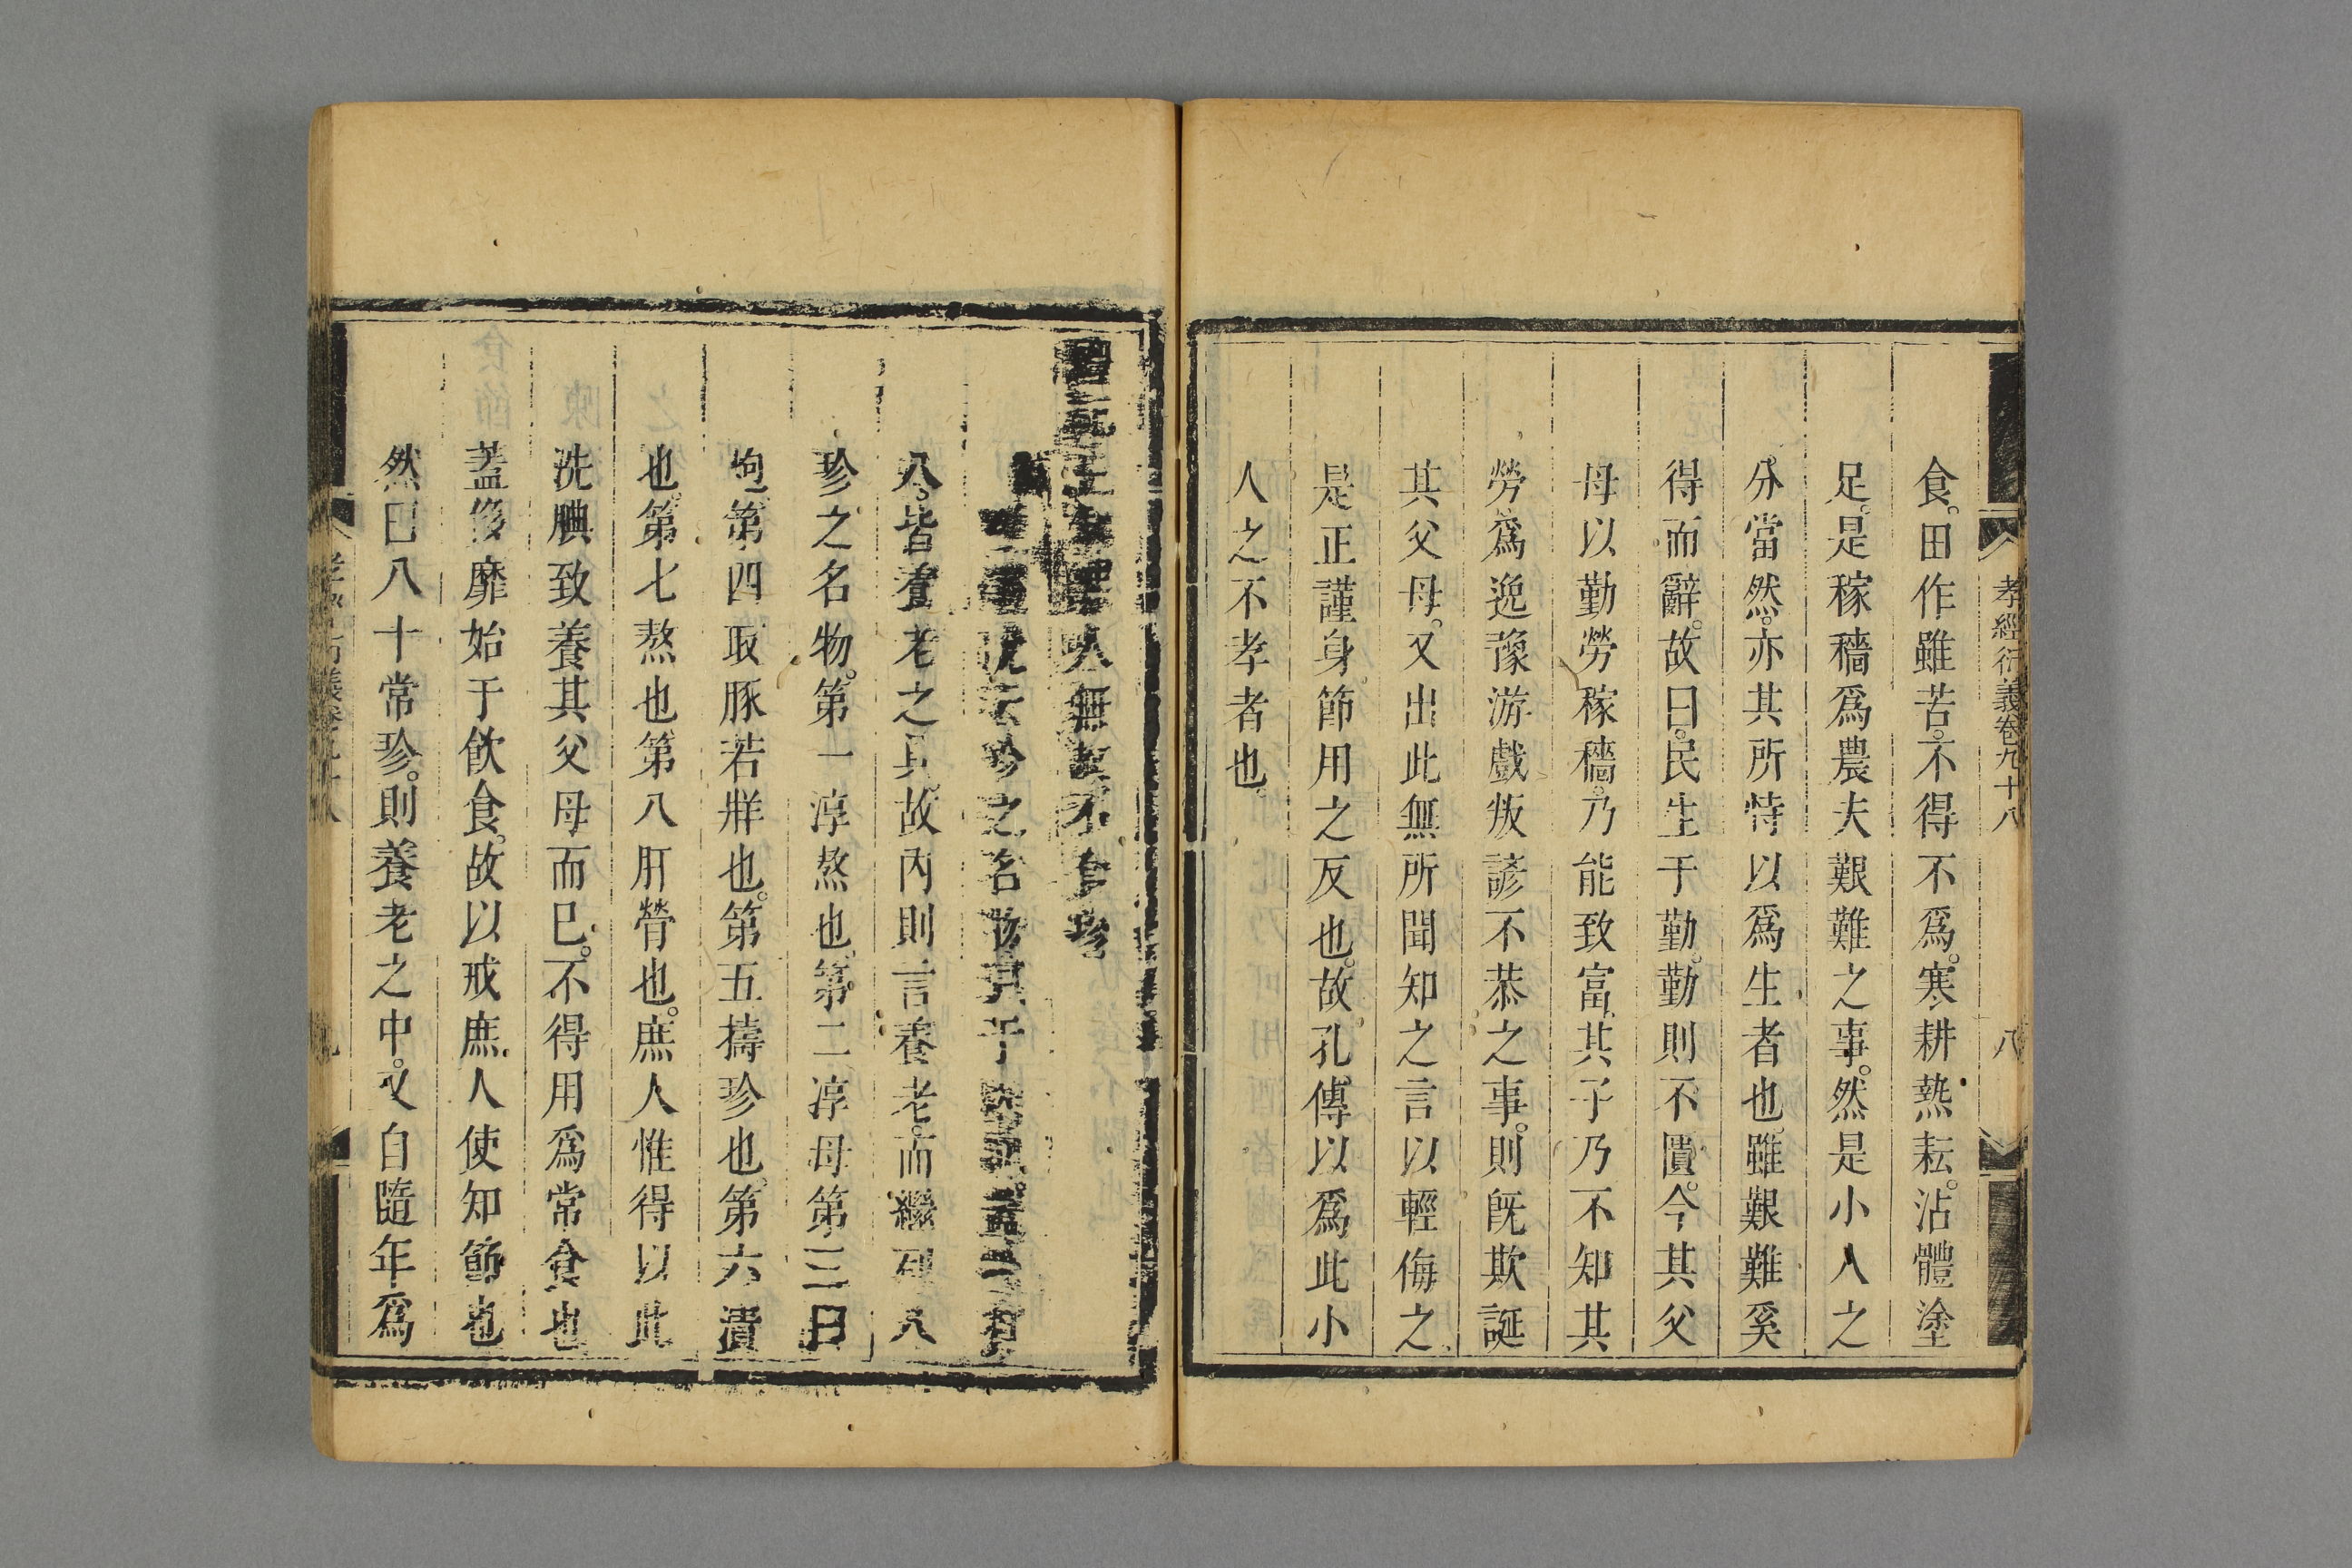 孝經衍義卷九十八 八
食。田作雖苦。不得不爲。寒耕熱耘。沾體塗
足。是稼穡爲農夫艱難之事。然是小人之
分。當然。亦其所恃以爲生者也。雖艱難奚
得而辭。故曰。民生于勤。勤則不匱。今其父
母以勤勞稼穡。乃能致富。其子乃不知其
勞。爲逸豫游戲叛諺不恭之事。則旣欺誕
其父母。又出此無所聞知之言以輕侮之
是正謹身節用之反也。故孔傳以爲此小
人之不孝者也。
人無故不食珍
珍之名物
八。皆養老之具。故內則言養老。而繼列八
珍之名物。第一淳熬也。第二淳母第三曰
炮。第四取豚若牂也。第五擣珍也。第六漬
也。第七熬也。第八肝膋也。庶人惟得以此
洗腆致養其父母而已。不得用爲常食也
蓋侈靡始于飲食。故以戒庶人使知節也
然已八十常珍。則養老之中。又自隨年爲